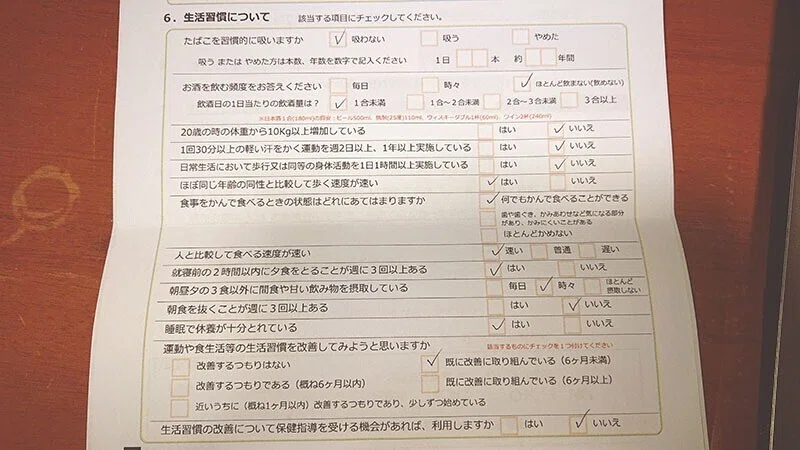 6．生活習慣について　該当する項目にチェックしてください。
たばこを習慣的に吸いますか　吸わない　吸う　やめた
吸う または やめた方は本数、年数を数字で記入ください　1日　本　約　年間
お酒を飲む頻度をお答えください　毎日　時々　ほとんど飲まない(飲めない)
飲酒日の1日当たりの飲酒量は？　1合未満　1合～2合未満　2合～3合未満　3合以上
※日本酒1合(180ml)の目安：ビール500ml、焼酎(25度)110ml、ウィスキーダブル1杯(60ml)、ワイン2杯(240ml)
20歳の時の体重から10Kg以上増加している　はい　いいえ
1回30分以上の軽い汗をかく運動を週2日以上、1年以上実施している　はい　いいえ
日常生活において歩行又は同等の身体活動を1日1時間以上実施している　はい　いいえ
ほぼ同じ年齢の同性と比較して歩く速度が速い　はい　いいえ
食事をかんで食べるときの状態はどれにあてはまりますか　何でもかんで食べることができる
歯や歯ぐき、かみあわせなど気になる部分
があり、かみにくいことがある
ほとんどかめない
人と比較して食べる速度が速い　速い　普通　遅い
就寝前の2時間以内に夕食をとることが週に3回以上ある　はい　いいえ
朝昼夕の3食以外に間食や甘い飲み物を摂取している　毎日　時々　ほとんど
摂取しない
朝食を抜くことが週に3回以上ある　はい　いいえ
睡眠で休養が十分とれている　はい　いいえ
運動や食生活等の生活習慣を改善してみようと思いますか　該当するものにチェックを1つ付けてください
改善するつもりはない　既に改善に取り組んでいる（6ヶ月未満）
改善するつもりである（概ね6ヶ月以内）　既に改善に取り組んでいる（6ヶ月以上）
近いうちに（概ね1ヶ月以内）改善するつもりであり、少しずつ始めている
生活習慣の改善について保健指導を受ける機会があれば、利用しますか　はい　いいえ